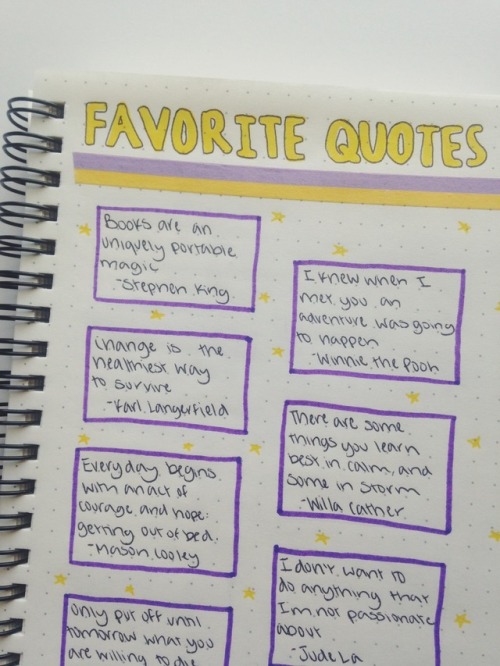 FAVORITE QUOTES
Books are an
uniquely portable
magic
-Stephen King
Change is the
healthiest way
to survive
-Karl Langerfield
Everyday begins
with an act of
courage and hope:
getting out of bed.
-Mason Cooley
Only put off until
tomorrow what you
are willing to die
I knew when I
met you an
adventure was going
to happen
-Winnie the Pooh
There are some
things you learn
best in calm, and
some in storm
-Willa Cather
I don't want to
do anything that
I'm not passionate
about
-Jude La